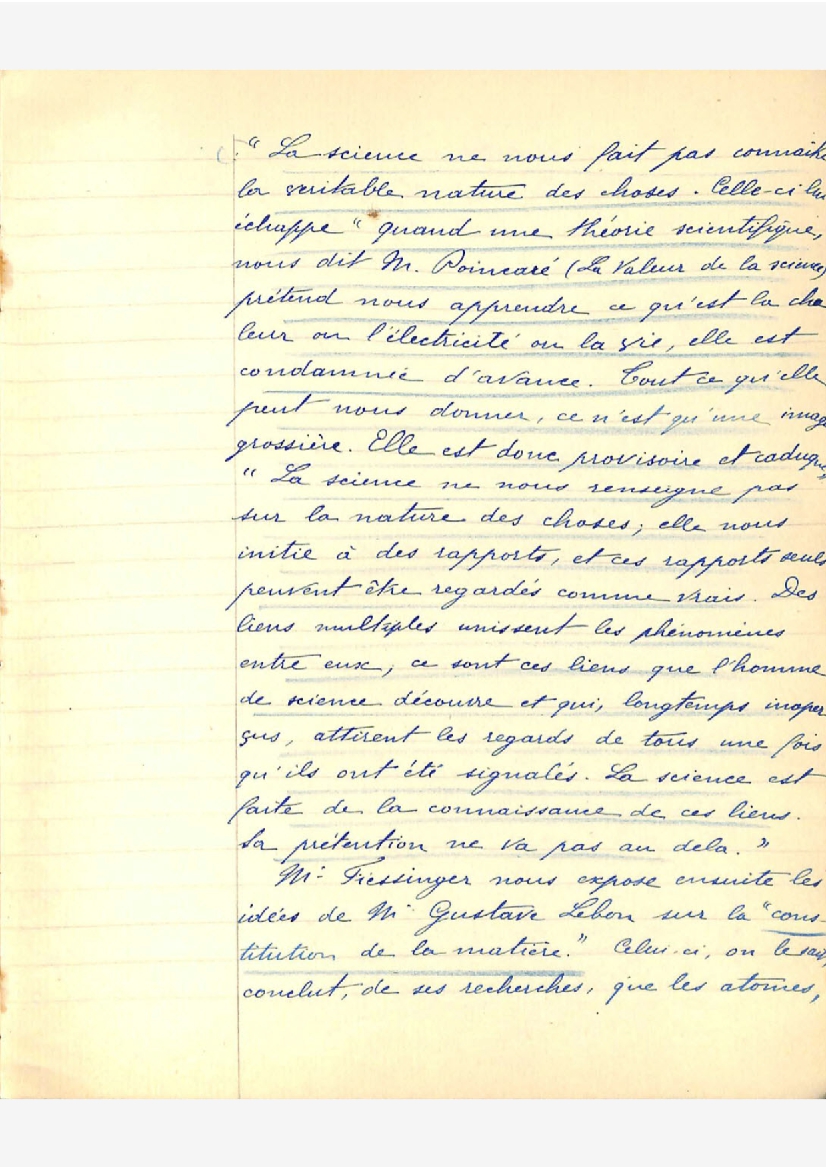 " La science ne nous fait pas connaître
la veritable nature des choses. Celle-ci lui
échappe " quand une théorie scientifique,
nous dit M. Poincaré (La Valeur de la science)
prétend nous apprendre ce qu'est la cha
leur ou l'électricité ou la vie, elle est
condamnée d'avance. Tout ce qu'elle
peut nous donner, ce n'est qu'une image
grossière. Elle est donc provisoire et caduque,
" La science ne nous renseigne pas
sur la nature des choses; elle nous
initie à des rapports, et ces rapports seuls
peuvent être regardés comme vrais. Des
liens multiples unissent les phénomènes
entre eux, ce sont ces liens que l'homme
de science découvre et qui, longtemps inaper
çus, attirent les regards de tous une fois
qu'ils ont été signalés. La science est
faite de la connaissance de ces liens.
Sa prétention ne va pas au dela."
Mr Fiessinger nous expose ensuite les
idées de Mr Gustave Lebon sur la "cons-
titution de la matière." Celui-ci, on le sait,
conclut, de ses recherches, que les atomes,